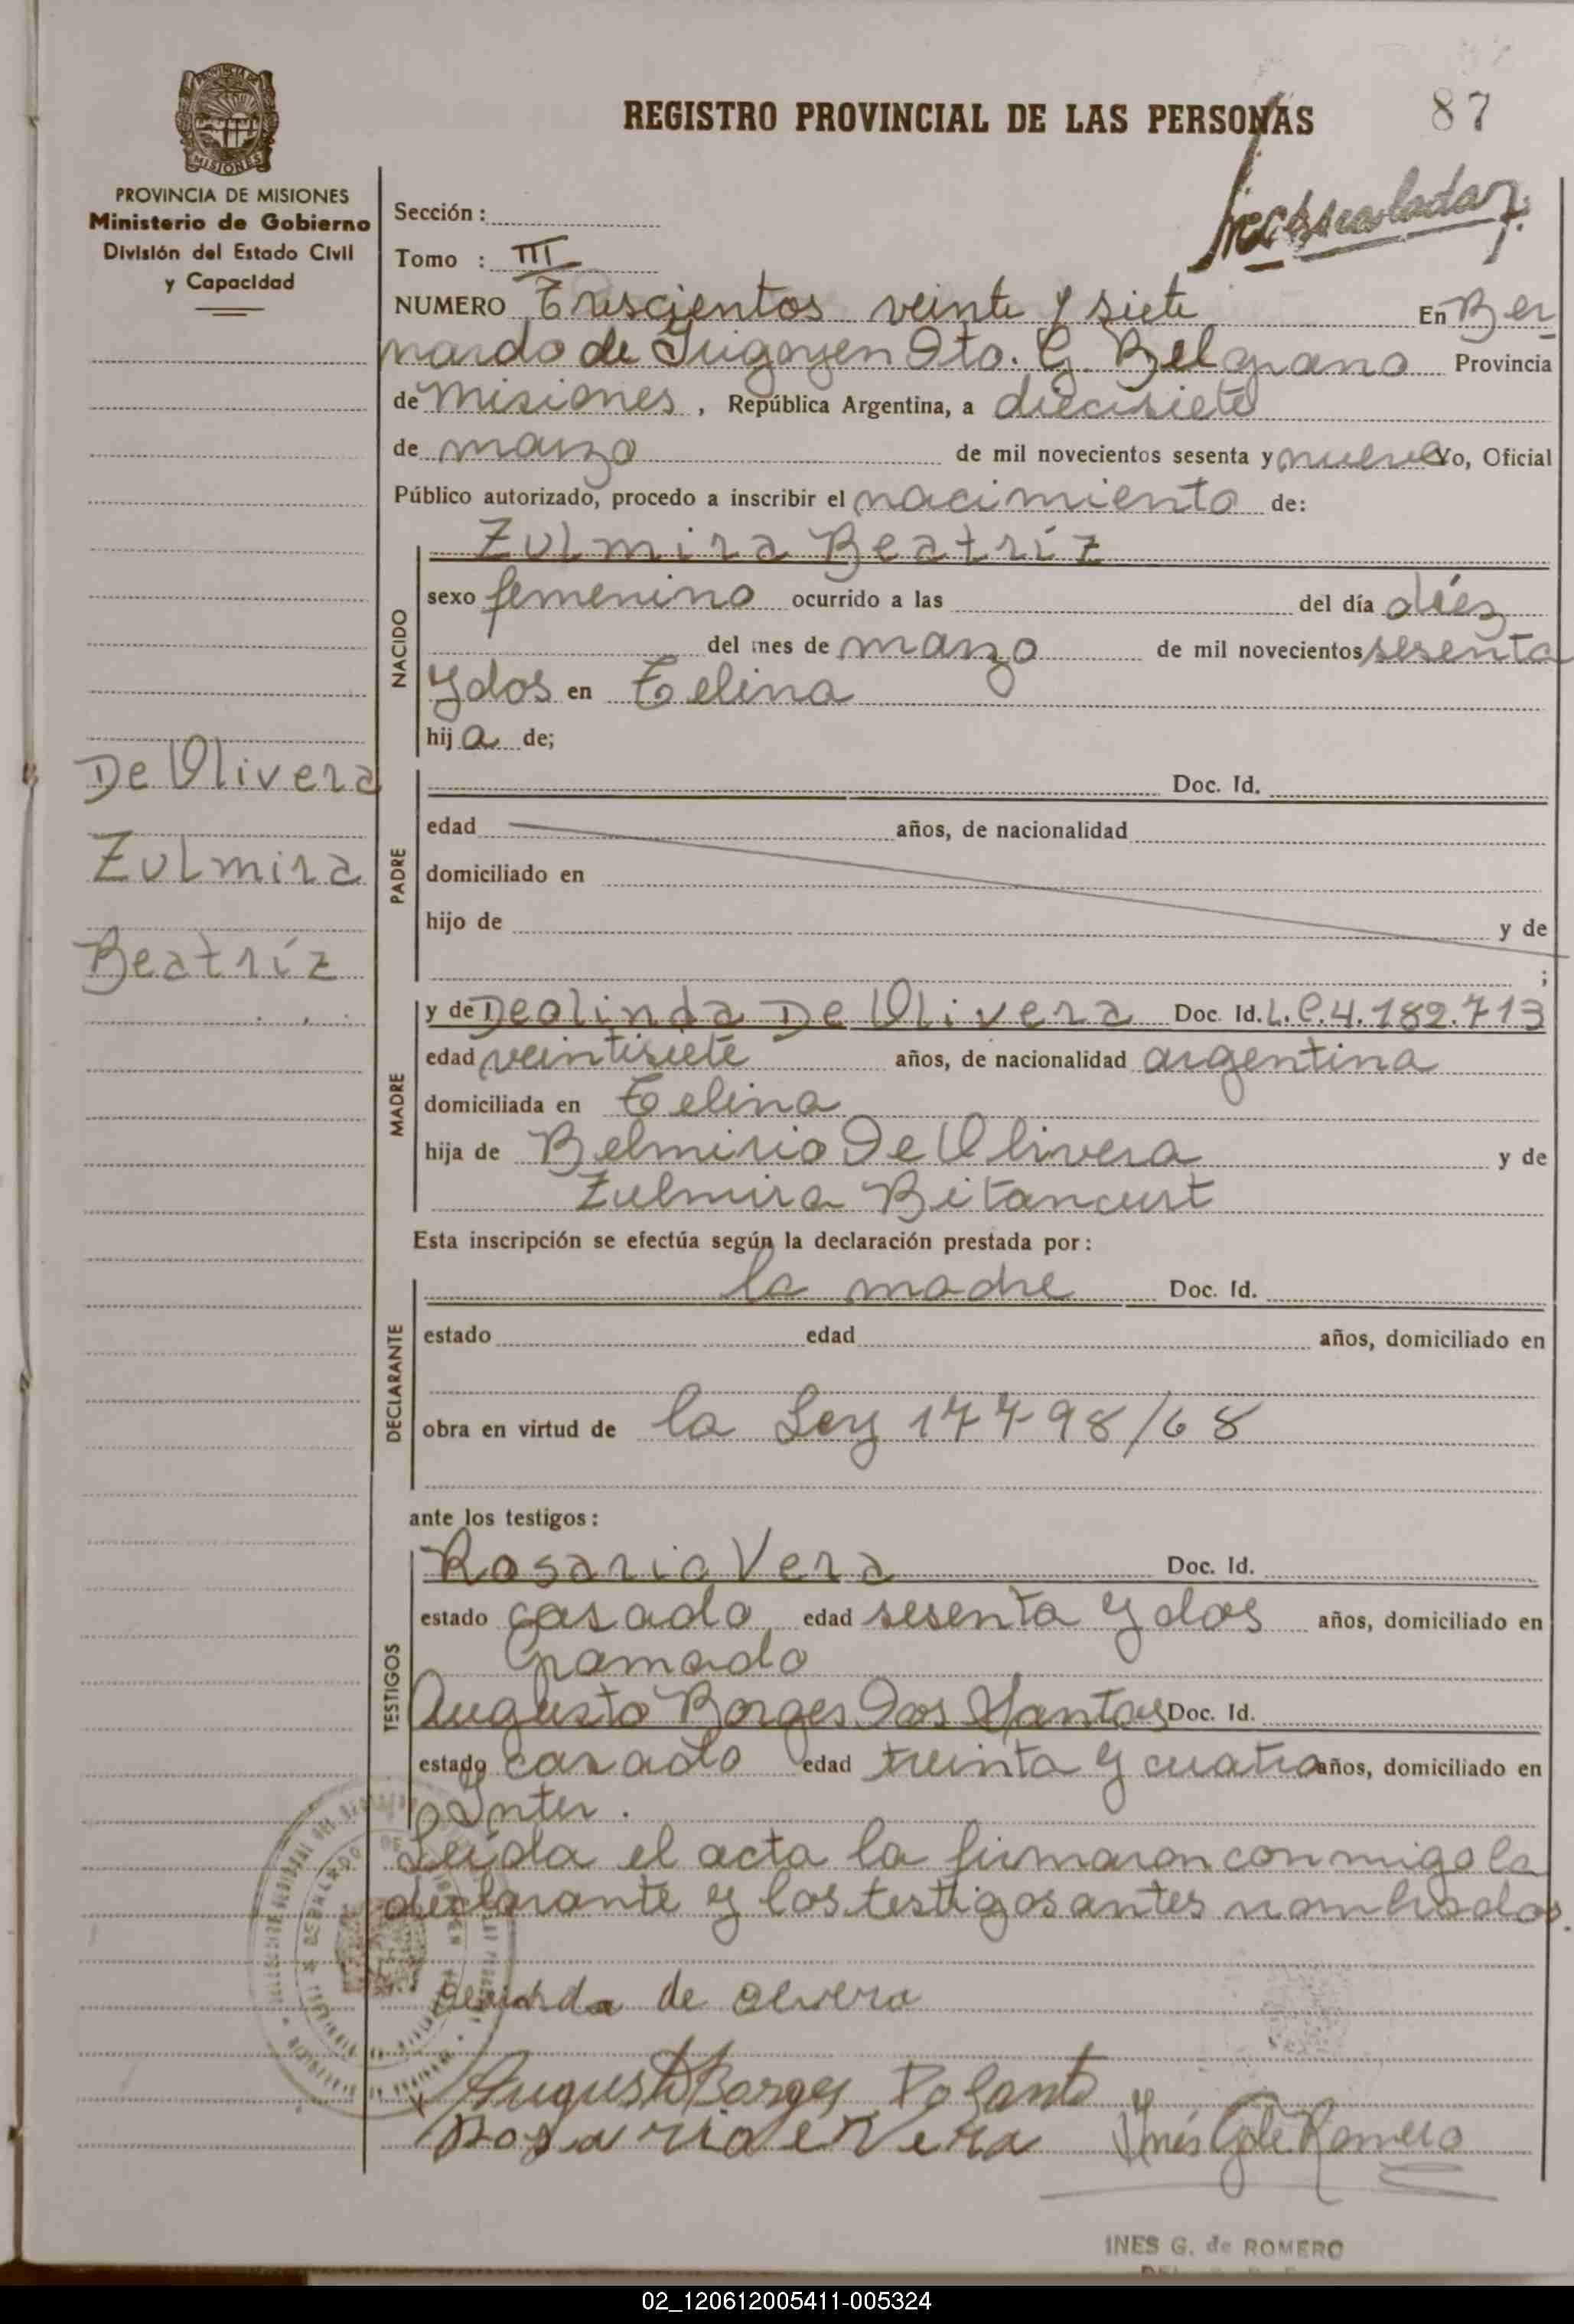 REGISTRO PROVINCIAL DE LAS PERSONAS
87
PROVINCIA DE MISIONES
Ministerio de Gobierno
División del Estado Civil
y Capacidad
Sección :
Tomo : III
NUMERO Trescientos veinte y siete En Ber
nardo de Irigoyen Dto. G. Belgrano Provincia
de misiones, República Argentina, a diecisiete
de marzo de mil novecientos sesenta y nueve Yo, Oficial
Público autorizado, procedo a inscribir el nacimiento de:
NACIDO
Zulmira Beatríz
sexo femenino ocurrido a las del día diéz
del mes de marzo de mil novecientos sesenta
y dos en Celina
hija de;
De Olivera
Zulmira
Beatríz
PADRE
Doc. Id.
edad años, de nacionalidad
domiciliado en
hijo de y de
;
MADRE
y de Deolinda De Olivera Doc. Id. L.C. 4.182.713
edad veintisiete años, de nacionalidad argentina
domiciliada en Celina
hija de Belmirio De Olivera y de
Zulmira Bitancurt
Esta inscripción se efectúa según la declaración prestada por:
DECLARANTE
la madre Doc. Id.
estado edad años, domiciliado en
obra en virtud de la Ley 17798/68
ante los testigos:
TESTIGOS
Rosario Vera Doc. Id.
estado casado edad sesenta y dos años, domiciliado en
Gramado
Augusto Borges Dos Santos Doc. Id.
estado casado edad treinta y cuatro años, domiciliado en
Leída el acta la firmaron conmigo la
declarante y los testigos antes nombrados.
de olivera
Augusto Borges Do Santo
Rosario e Vera Inés G de Romero
INES G. de ROMERO
02_120612005411-005324